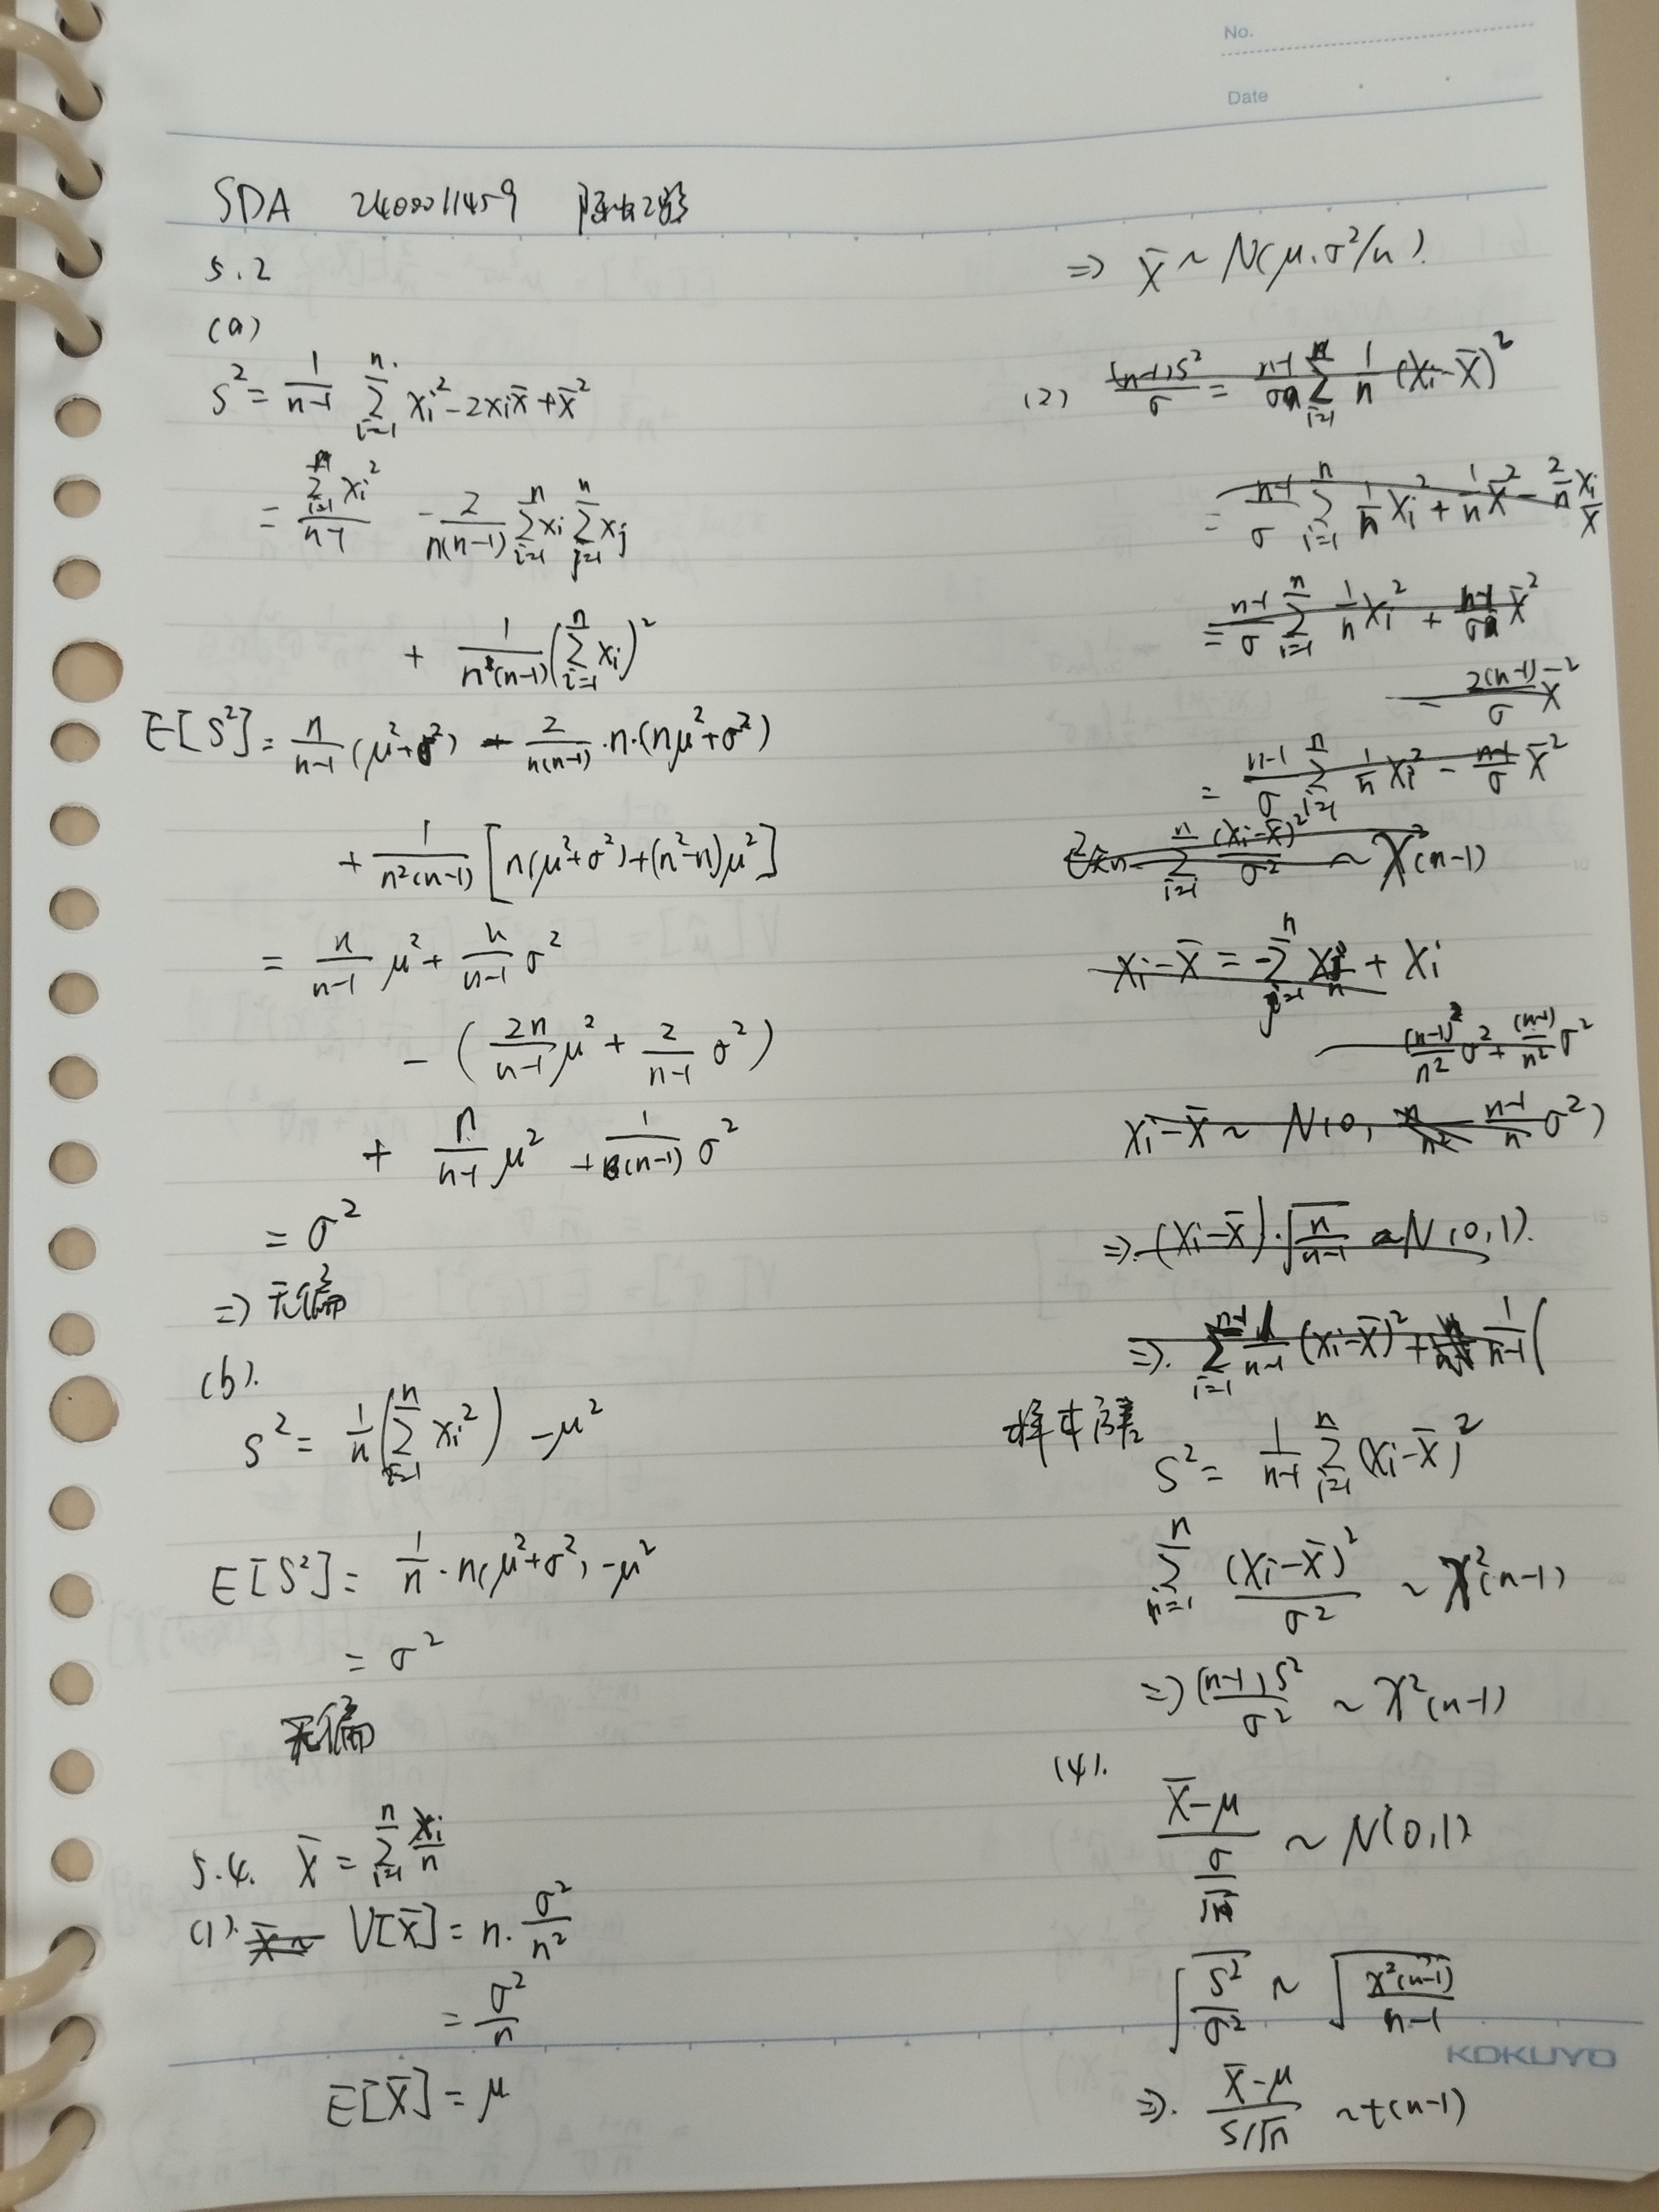 No.
Date
SDA 2400011459
5.2
(a)
S² = 1/(n-1) Σ_{i=1}^{n} xi² - 2xi x̄ + x̄²
= Σ_{i=1}^{n} xi² / (n-1) - 2/(n(n-1)) Σ_{i=1}^{n} xi Σ_{j=1}^{n} xj
+ 1/(n²(n-1)) (Σ_{i=1}^{n} xi)²
E[S²] = n/(n-1) (μ²+σ²) - 2/(n(n-1)) · n · (nμ²+σ²)
+ 1/(n²(n-1)) [n(μ²+σ²)+(n²-n)μ²]
= n/(n-1) μ² + n/(n-1) σ²
- (2n/(n-1) μ² + 2/(n-1) σ²)
+ n/(n-1) μ² + 1/(n(n-1)) σ²
= σ²
=> 无偏
(b).
S² = 1/n (Σ_{i=1}^{n} xi²) - μ²
E[S²] = 1/n · n(μ²+σ²) - μ²
= σ²
无偏
5.4. X̄ = Σ_{i=1}^{n} xi/n
(1). V[X̄] = n · σ²/n²
= σ²/n
E[X̄] = μ
=> X̄ ~ N(μ, σ²/n).
(2) (n-1)S²/σ = (n-1)/σ Σ_{i=1}^{n} 1/n (Xi-X̄)²
= (n-1)/σ Σ_{i=1}^{n} 1/n Xi² + 1/n X̄² - 2/n Xi X̄
= (n-1)/σ Σ_{i=1}^{n} 1/n Xi² + (n-1)/σ X̄²
- 2(n-1)/σ X̄²
= (n-1)/σ Σ_{i=1}^{n} 1/n Xi² - (n-1)/σ X̄²
Σ_{i=1}^{n} (Xi-X̄)²/σ² ~ χ²(n-1)
Xi-X̄ = -Σ_{j=1}^{n} Xj/n + Xi
(n-1)²/n² σ² + (n-1)/n² σ²
Xi-X̄ ~ N(0, (n-1)/n σ²)
=> (Xi-X̄) · √(n/(n-1)) ~ N(0,1).
=> Σ_{i=1}^{n-1} 1/(n-1) (Xi-X̄)² + 1/(n-1) (
样本方差 S² = 1/(n-1) Σ_{i=1}^{n} (Xi-X̄)²
Σ_{i=1}^{n} (Xi-X̄)²/σ² ~ χ²(n-1)
=> (n-1)S²/σ² ~ χ²(n-1)
(4).
(X̄-μ)/(σ/√n) ~ N(0,1)
√(S²/σ²) ~ √(χ²(n-1)/(n-1))
=>. (X̄-μ)/(S/√n) ~ t(n-1)
KOKUYO